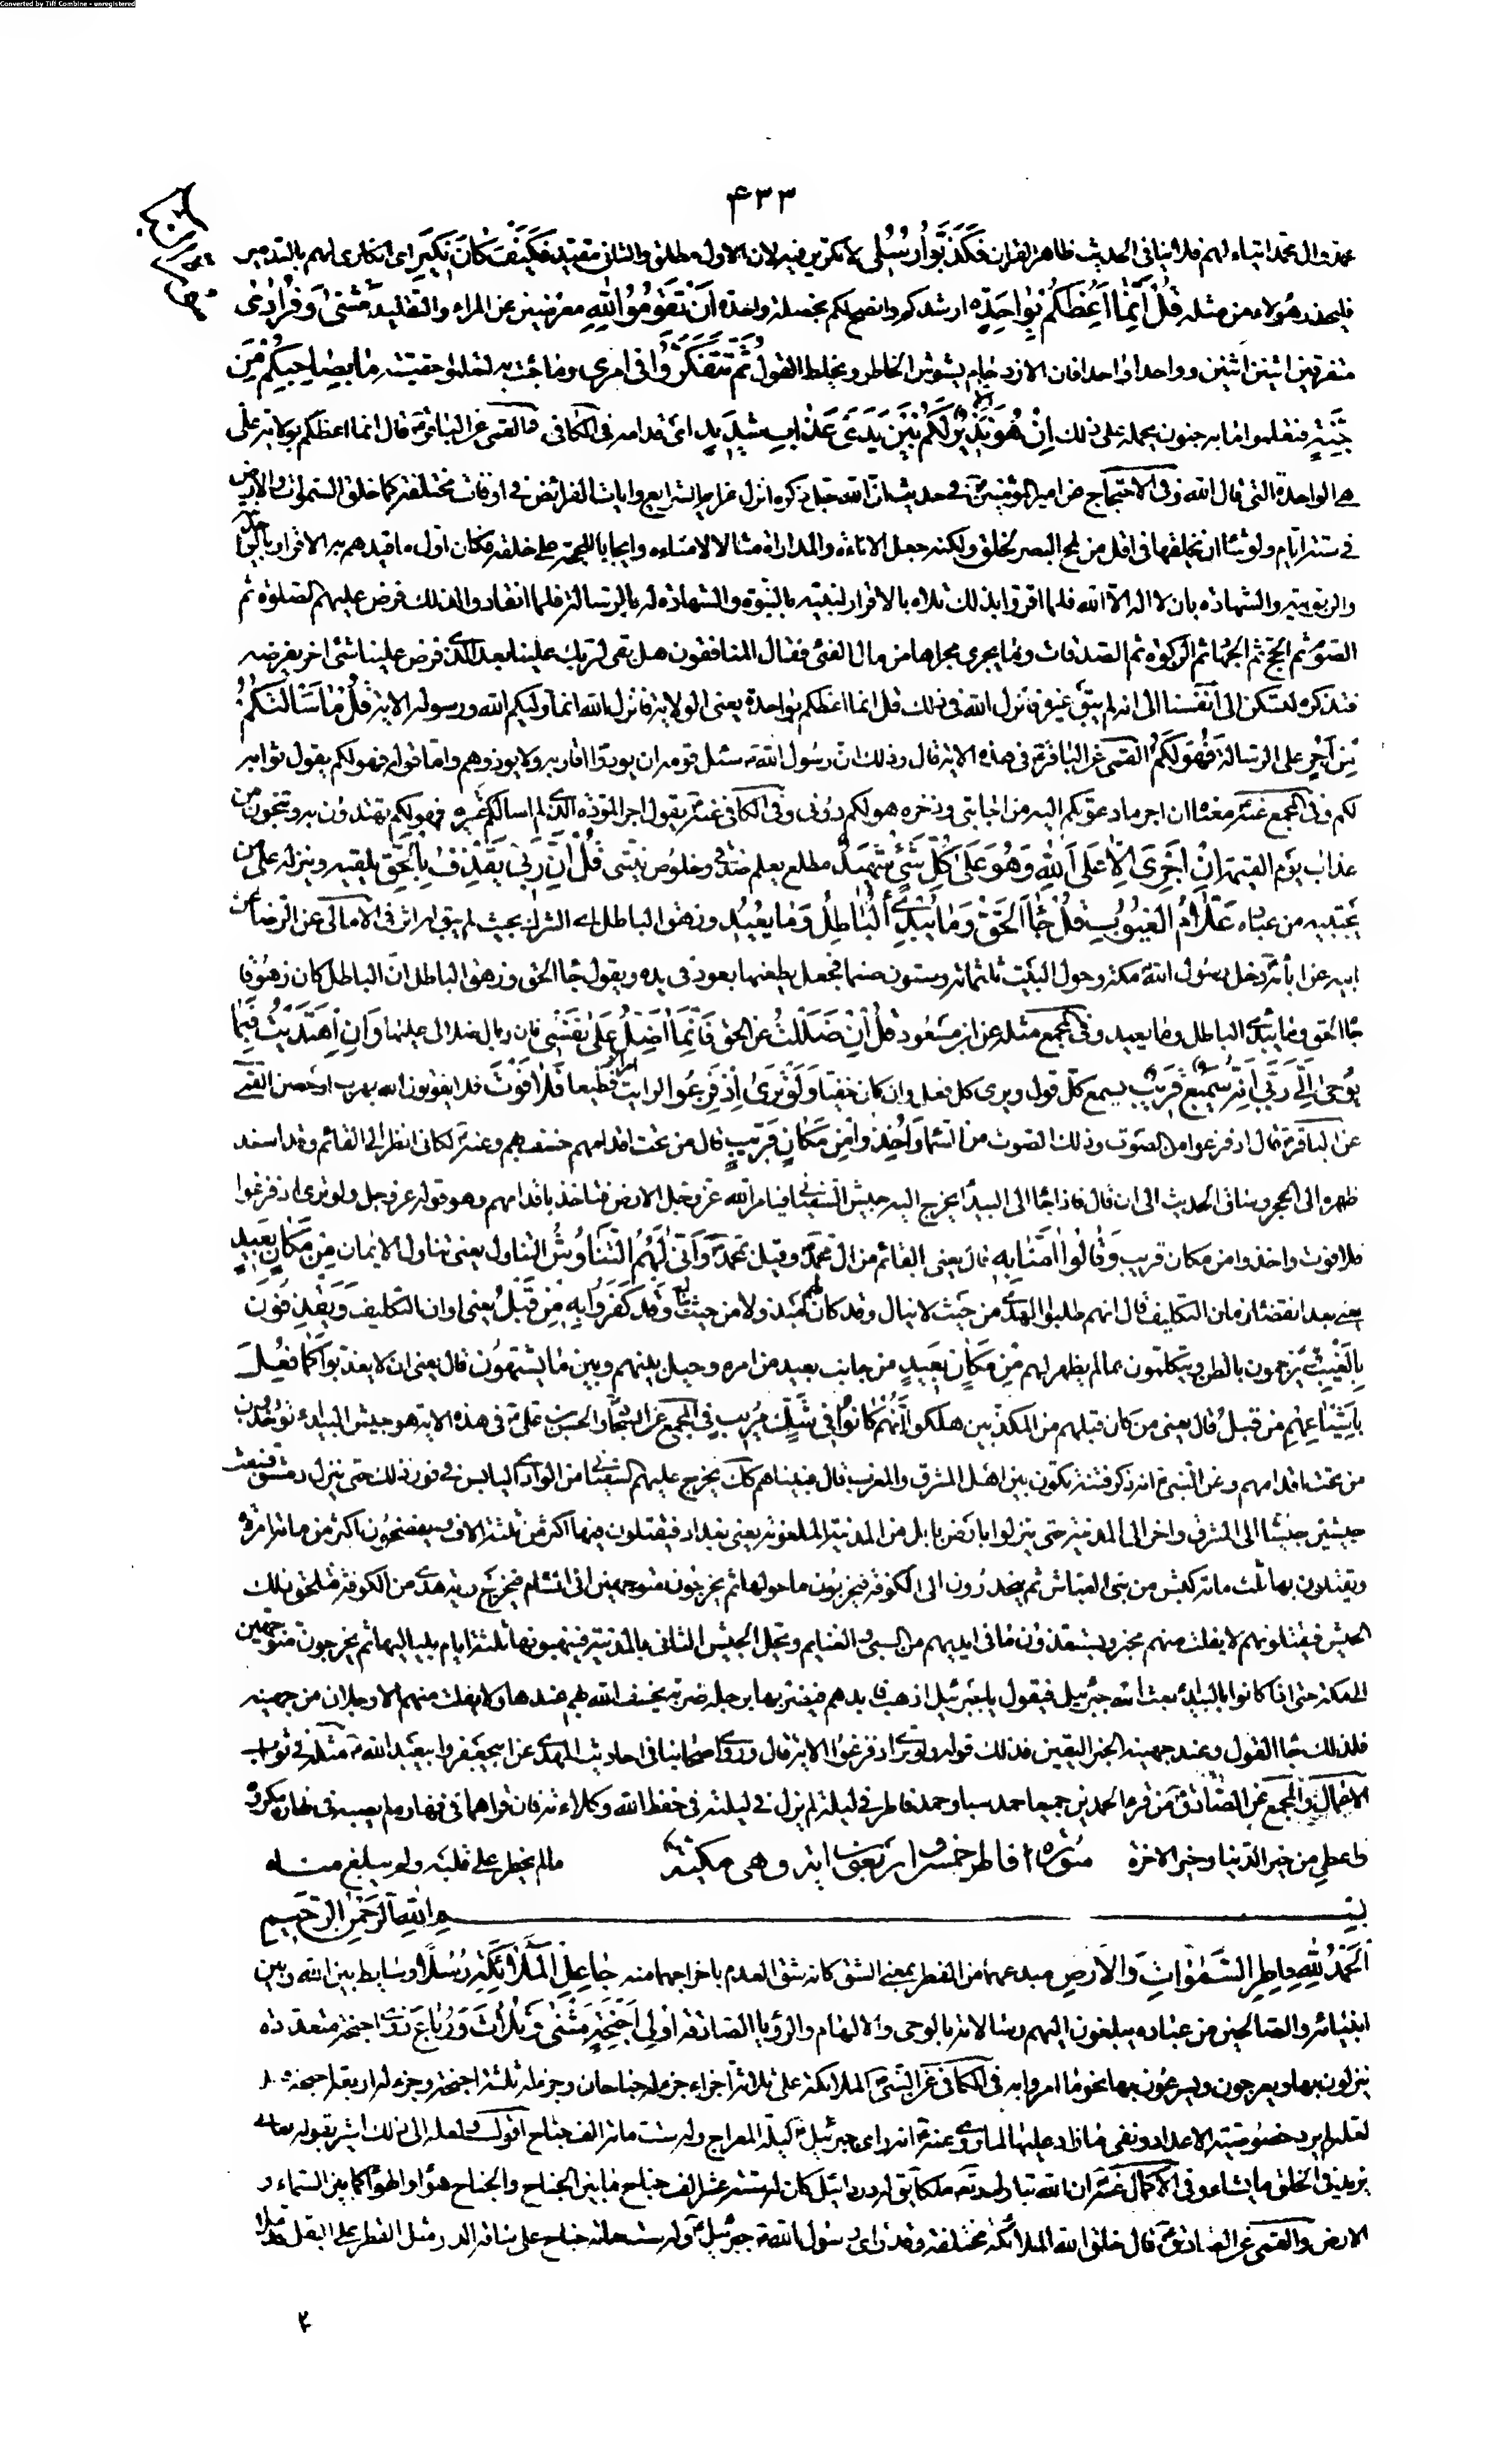 Converted by Tiff Combine - unregistered
۴۳۳
محمد وال محمد انبياءهم فلا ينافى الحديث ظاهر القران فَكَذَّبُوا رُسُلِى لا تكرير فيه لان الاول مطلق والثانى مقيد فَكَيْفَ كَانَ نَكِيرِ اى انكارى لهم بالتدمير
فليحذر هؤلاء من مثله قُلْ اِنَّمَا اَعِظُكُمْ بِوَاحِدَةٍ ارشدكم وانصح لكم بخصلة واحدة اَنْ تَقُومُوا لِلّٰهِ معرضين عن المراء والتقليد مَثْنىٰ وَفُرَادىٰ
متفرقين اثنين اثنين وواحدا واحدا فان الازدحام يشوش الخاطر ويخلط القول ثُمَّ تَتَفَكَّرُوا فى امرى وما جئت به لتعلموا حقيقته مَا بِصَاحِبِكُمْ مِنْ
جِنَّةٍ فتعلموا ما به جنون يحمله على ذلك اِنْ هُوَ اِلَّا نَذِيرٌ لَكُمْ بَيْنَ يَدَىْ عَذَابٍ شَدِيدٍ اى قدامه فى الكافى والقمى عن الباقر قال انما اعظكم بولاية على
هى الواحدة التى قال الله وفى الاحتجاج عن امير المؤمنين فى حديث ان الله جل ذكره انزل عزايم الشرايع وايات الفرائض فى اوقات مختلفة كما خلق السموات والارض
فى ستة ايام ولو شاء ان يخلقها فى اقل من لمح البصر لخلق ولكنه جعل الاناة والمداراة مثالا لامنائه وايجابا للحجة على خلقه فكان اول ما قيدهم به الاقرار بالوحدانية
والربوبية والشهادة بان لا اله الا الله فلما اقروا بذلك تلاه بالاقرار لنبيه بالنبوة والشهادة له بالرسالة فلما انقادوا لذلك فرض عليهم الصلوة ثم
الصوم ثم الحج ثم الجهاد ثم الزكوة ثم الصدقات وما يجرى مجراها من مال الفئ فقال المنافقون هل بقى لربك علينا بعد الذى فرض علينا شئ اخر يفرضه
فتذكره لتسكن الى انفسنا الى انه لم يبق غيره فانزل الله فى ذلك قل انما اعظكم بواحدة يعنى الولاية فانزل الله انما وليكم الله ورسوله الاية قُلْ مَا سَأَلْتُكُمْ
مِنْ اَجْرٍ على الرسالة فَهُوَ لَكُمْ القمى عن الباقر فى هذه الاية قال وذلك ان رسول الله سئل قومه ان يودوا اقاربه ولا يوذوهم واما قوله فهو لكم يقول ثوابه
لكم وفى المجمع عنه معناه ان اجر ما دعوتكم اليه من اجابتى وذخره هو لكم دونى وفى الكافى عنه يقول اجر المودة الذى لم اسالكم غيره فهو لكم تهتدون به وتنجون من
عذاب يوم القيمة اِنْ اَجْرِىَ اِلَّا عَلَى اللهِ وَهُوَ عَلىٰ كُلِّ شَىْءٍ شَهِيدٌ مطلع يعلم صدقى وخلوص نيتى قُلْ اِنَّ رَبِّى يَقْذِفُ بِالْحَقِّ يلقيه وينزله على من
يجتبيه من عباده عَلَّامُ الْغُيُوبِ قُلْ جَاءَ الْحَقُّ وَمَا يُبْدِئُ الْبَاطِلُ وَمَا يُعِيدُ وزهق الباطل اى الشرك بحيث لم يبق له اثر فى الامالى عن الرضا عن
ابيه عن ابائه دخل رسول الله مكة وحول البيت ثلثمائة وستون صنما فجعل يطعنها بعود فى يده ويقول جاء الحق وزهق الباطل ان الباطل كان زهوقا
جاء الحق وما يبدئ الباطل وما يعيد وفى المجمع مثله عن ابن مسعود قُلْ اِنْ ضَلَلْتُ عن الحق فَاِنَّمَا اَضِلُّ عَلىٰ نَفْسِى فان وبال ضلالى عليها وَاِنِ اهْتَدَيْتُ فَبِمَا
يُوحىٰ اِلَىَّ رَبِّى اِنَّهُ سَمِيعٌ قَرِيبٌ يسمع كل قول ويرى كل فعل وان كان خفيا وَلَوْ تَرىٰ اِذْ فَزِعُوا لرايت امرا فظيعا فَلَا فَوْتَ فلا يفوتون الله بهرب او حصن القمى
عن الباقر قال اذ فزعوا من الصوت وذلك الصوت من السماء وَاُخِذُوا مِنْ مَكَانٍ قَرِيبٍ قال من تحت اقدامهم خسف بهم وعنه لكانى انظر الى القائم وقد اسند
ظهره الى الحجر وساق الحديث الى ان قال فاذا جاء الى البيداء يخرج اليه جيش السفيانى فيامر الله عز وجل الارض فتاخذ باقدامهم وهو قوله عز وجل ولو ترى اذ فزعوا
فلا فوت واخذوا من مكان قريب وَقَالُوا اٰمَنَّا بِهِ قال يعنى القائم من ال محمد وقيل بمحمد وَاَنّىٰ لَهُمُ التَّنَاوُشُ التناول يعنى تناول الايمان مِنْ مَكَانٍ بَعِيدٍ
يعنى بعد انقضاء زمان التكليف قال انهم طلبوا الهدى من حيث لا ينال وقد كان لهم مبذولا من حيث ينال وَقَدْ كَفَرُوا بِهِ مِنْ قَبْلُ يعنى اوان التكليف وَيَقْذِفُونَ
بِالْغَيْبِ يرجمون بالظن ويتكلمون بما لم يظهر لهم مِنْ مَكَانٍ بَعِيدٍ من جانب بعيد من امره وحيل بينهم وبين ما يشتهون قال يعنى ان لا يعذبوا كَمَا فُعِلَ
بِاَشْيَاعِهِمْ من قبل قال يعنى من كان قبلهم من المكذبين هلكوا اِنَّهُمْ كَانُوا فِى شَكٍّ مُرِيبٍ فى المجمع عن السجاد والحسن بن على فى هذه الاية هو جيش البيداء يؤخذون
من تحت اقدامهم وعن النبى انه ذكر فتنة تكون بين اهل المشرق والمغرب قال فبيناهم كذلك يخرج عليهم السفيانى من الوادى اليابس فى فور ذلك حتى ينزل دمشق فيبعث
جيشين جيشا الى المشرق واخر الى المدينة حتى ينزلوا بارض بابل من المدينة الملعونة يعنى بغداد فيقتلون فيها اكثر من ثلثة الاف ويفضحون اكثر من مائة امرئة
ويقتلون بها ثلث مائة كبش من بنى العباس ثم ينحدرون الى الكوفة فيخربون ما حولها ثم يخرجون متوجهين الى الشام فيخرج راية هدى من الكوفة فيلحق ذلك
الجيش فيقتلونهم لا يفلت منهم مخبر ويستنقذون ما فى ايديهم من السبى والغنايم ويحل الجيش الثانى بالمدينة فينتهبونها ثلثة ايام بلياليها ثم يخرجون متوجهين
الى مكة حتى اذا كانوا بالبيداء بعث الله جبرئيل فيقول يا جبرئيل اذهب فابدهم فيضربها برجله ضربة يخسف الله بهم عندها ولا يفلت منهم الا رجلان من جهينة
فلذلك جاء القول وعند جهينة الخبر اليقين فذلك قوله ولو ترى اذ فزعوا الاية قال وروى اصحابنا فى احاديث المهدى عن ابيجعفر وابيعبد الله مثله فى ثواب
الاعمال والمجمع عن الصادق من قرء الحمدين جميعا حمد سبا وحمد فاطر فى ليلة لم يزل فى ليلته فى حفظ الله وكلاءته فان قراهما فى نهاره لم يصبه فى نهاره مكروه
واعطى من خير الدنيا وخير الاخرة سورة فاطر خمس واربعون اية وهى مكية ما لم يخطر على قلبه ولم يبلغ مناه
بسم الله الرحمن الرحيم
اَلْحَمْدُ لِلّٰهِ فَاطِرِ السَّمٰوَاتِ وَالْاَرْضِ مبدعهما من الفطر بمعنى الشق كانه شق العدم باخراجهما منه جَاعِلِ الْمَلٰائِكَةِ رُسُلًا وسايط بين الله وبين
انبيائه والصالحين من عباده يبلغون اليهم رسالاته بالوحى والالهام والرؤيا الصادقة اُولِى اَجْنِحَةٍ مَثْنىٰ وَثُلَاثَ وَرُبَاعَ ذوى اجنحة متعددة
ينزلون بها ويعرجون ويسرعون بها نحو ما امروا به فى الكافى عن النبى الملائكة على ثلاثة اجزاء جزء له جناحان وجزء له ثلثة اجنحة وجزء له اربعة اجنحة
لعله لم يرد خصوصية الاعداد ونفى ما زاد عليها لما روى عنه انه راى جبرئيل ليلة المعراج وله ست مائة الف جناح اقول ولعله الى ذلك اشير بقوله تعالى
يزيد فى الخلق ما يشاء وفى الاكمال عنه ان لله تبارك وتع ملكا يق له دردائيل كان له ستة عشر الف جناح ما بين الجناح والجناح هواء والهواء كما بين السماء و
الارض والقمى عن الصادق قال خلق الله الملائكة مختلفة وقد راى رسول الله جبرئيل وله ستمائة جناح على ساقه الدر مثل القطر على البقل قد ملا